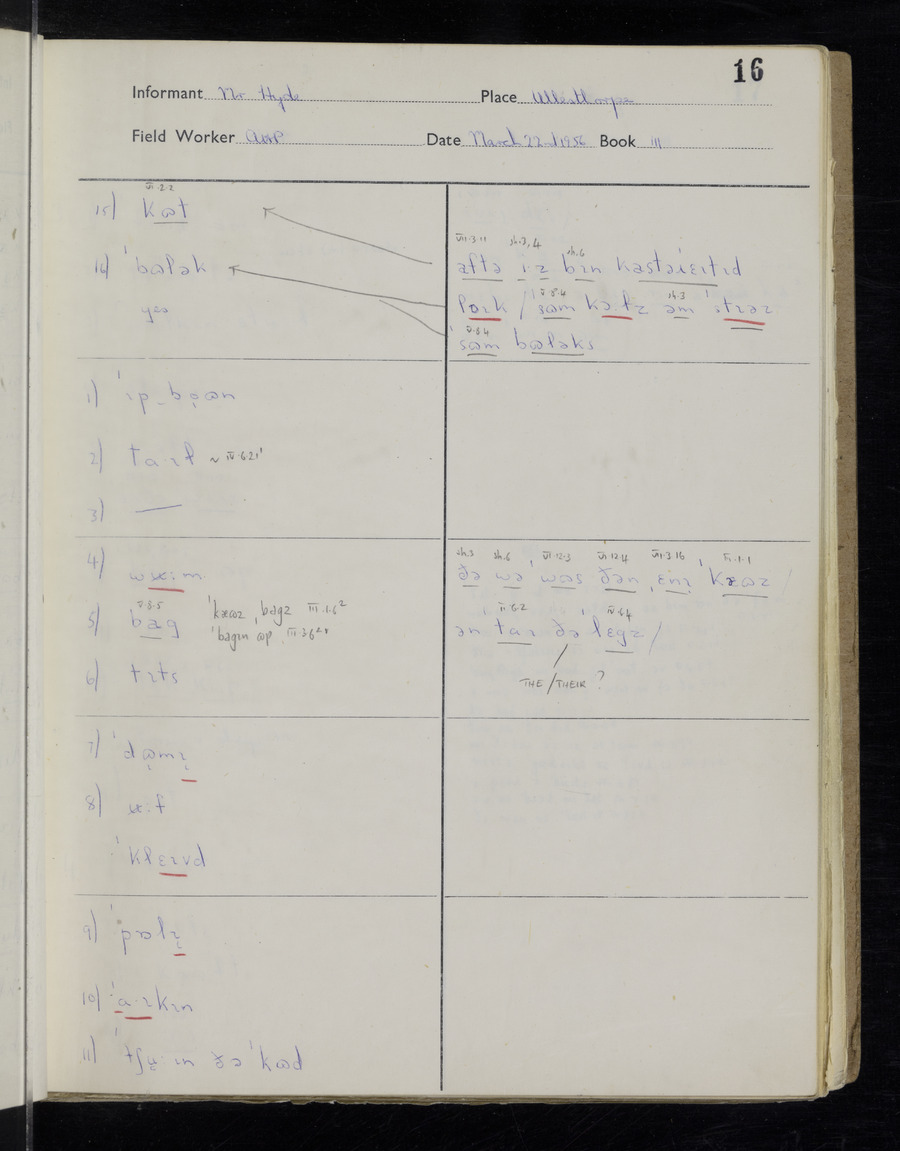 16
Informant Mr Hyde Place Ullesthorpe
Field Worker
Date March 22nd 1956 Book III
VI.2.2
15) kɷt
16) ˈbɷlək
yes
VII.3.11 sh.3,4 sh.6
aftə ɪz bɪn kastəɹɛɪtɪd
V.8.4 sh.3
pɔɹk / ˈsɷm kəts əm ˈstɹəz
V.8.4
ˈsɷm bɷləks
1) ˈɪp_bɷɷn
2) ta·ɪl ~ IV.6.21
3) —
4) wʉ:m
V.8.5
5) bag ˈkæɷz ˌbagz III.1.6²
ˈbagɪn ɷp III.3.6²
6) tɪts
sh.3 sh.6 VI.12.3 VI.12.4 VII.3.16 III.1.1
ðə wə ˈwɷs ðən ˌɛnɪ ˈkæɷz /
VI.6.2 IV.6.4
ən ˈtaɪ ðə ˈlɛgz /
THE/THEIR?
7) ˈdɷmɪ
8) ʉ·f
ˈklɛɪvd
9) ˈpɒlɪ
10) ˈa·ɪkɪn
11) ˈtʃʉ: ɪn ðə ˈkɷd